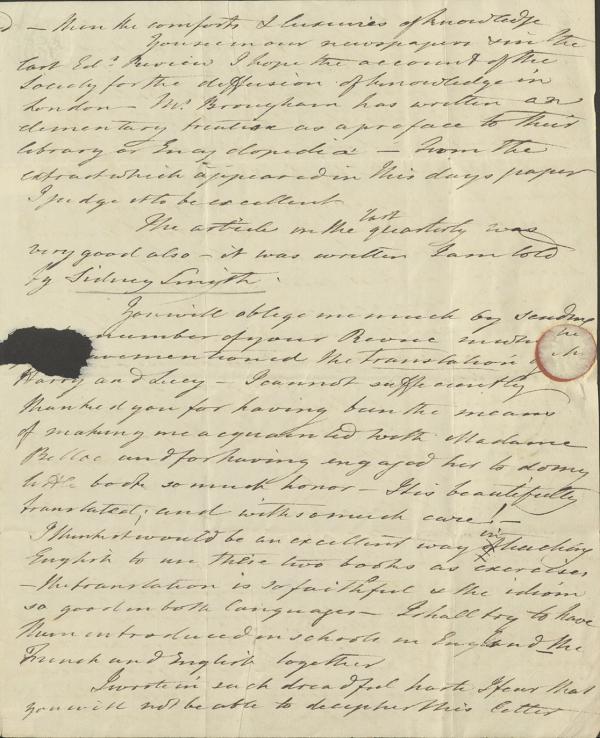 – than the comforts & luxuries of knowledge
You see in our newspapers & in the
last Edr. Review I hope the account of the
Society for the diffusion of knowledge in
London – Mr. Brougham has written an
elementary treatise as a preface to their
library or Encyclopedia – From the
extract which appeared in this days paper
I judge it to be excellent
The article in the last quarterly was
very good also – it was written I am told
by Sidney Smyth
You will oblige me much by sending
number of your Revue in which
you mentioned the translation of
Harry and Lucy – I cannot sufficiently
thanked you for having been the means
of making me acquainted with Madame
Belloc and for having engaged her to do my
little book so much honor – It is beautifully
translated; and with so much care! –
I think it would be an excellent way in teaching
English to use these two books as exercises
– the translation is so faithful & the idiom
so good in both languages – I shall try to have
them introduced in schools in England the
French and English together
I write in such dreadful haste I fear that
you will not be able to decipher this letter